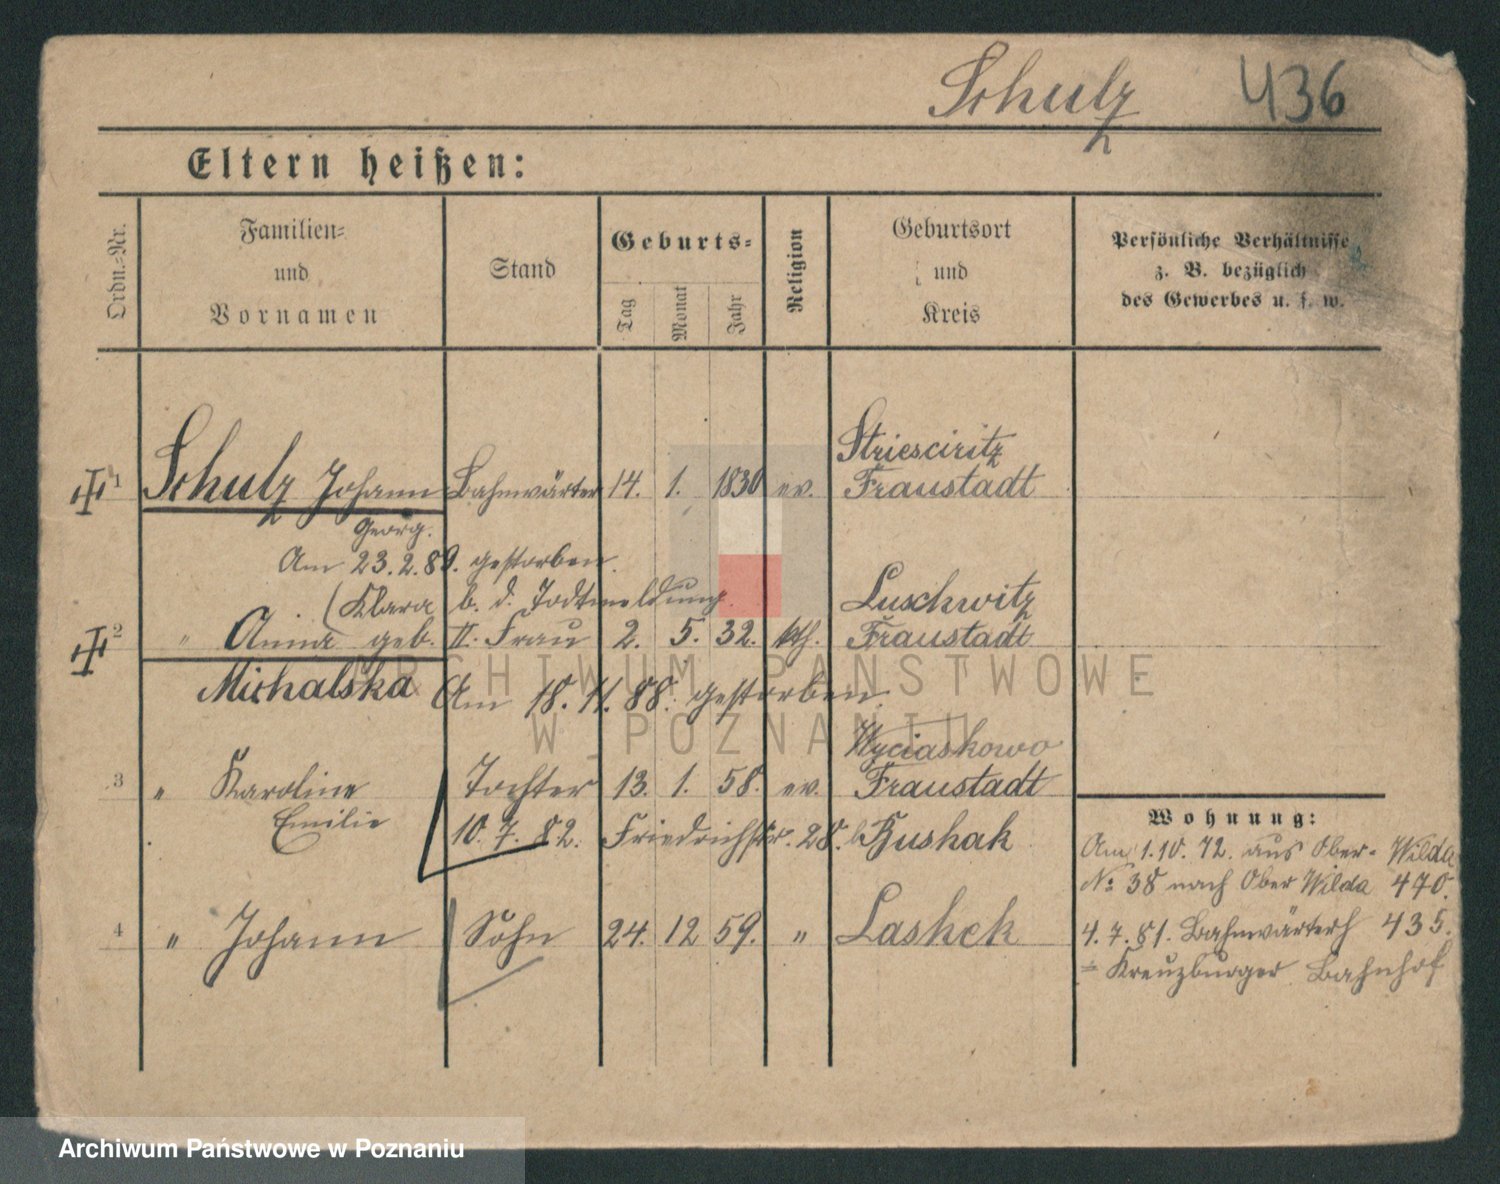 Schulz 436
Eltern heißen:
Ordn.-Nr.
Familien-
und
Vornamen
Stand
Geburts-
Tag
Monat
Jahr
Religion
Geburtsort
und
Kreis
Persönliche Verhältnisse
z. B. bezüglich
des Gewerbes u. s. w.
Striesciritz
1 Schulz Johann Bahnwärter 14. 1. 1830 ev. Fraustadt
Georg.
Am 23.2.89. gestorben.
(Klara b. d. Todtmeldung Luschwitz
2 " Anna geb. II. Frau 2. 5. 32. kth. Fraustadt
Michalska Am 18.11.88. gestorben.
ARCHIWUM PAŃSTWOWE
W POZNANIU
Wyciaskowo
3 " Karoline Tochter 13. 1. 58. ev. Fraustadt
Emilie 10.7.82. Friedrichstr. 28. b Kushak
4 " Johann Sohn 24. 12 59. " Lashek
Wohnung:
Am 1.10.72. aus Ober- Wilda
No 38 nach Ober Wilda 470.
4.7.81. Bahnwärterh 435.
= Kreuzburger Bahnhof
Archiwum Państwowe w Poznaniu